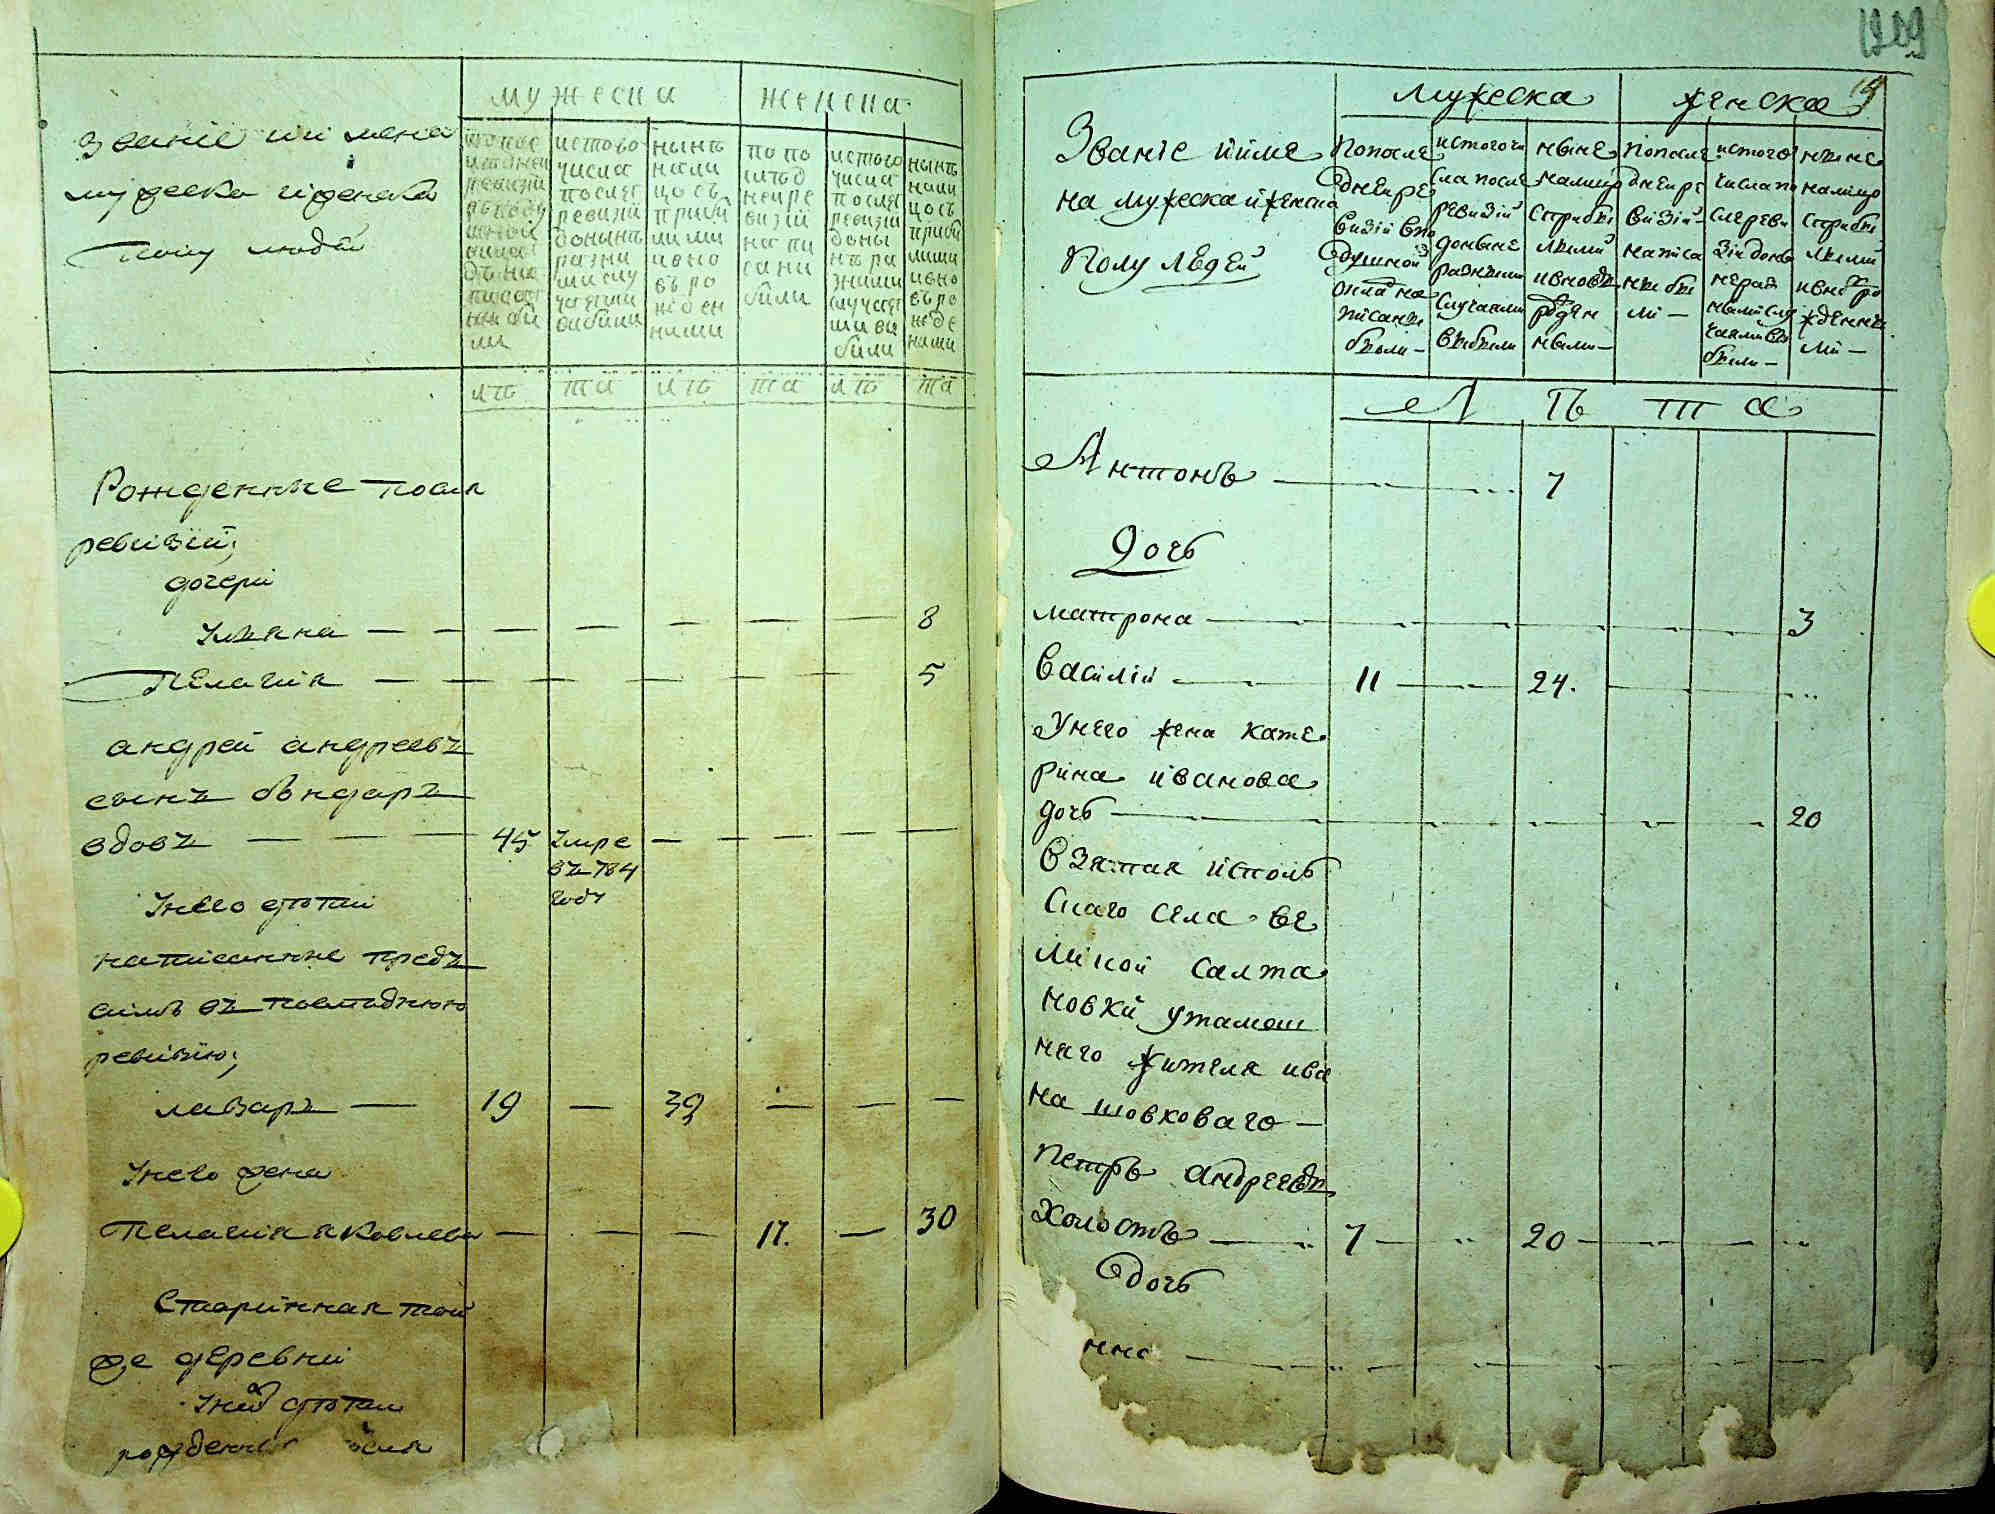 званїе иимена
мужеска иженска
полу людей
мужеска
женска
попос
леднеи
ревизїи
вподу
шной
окладъ
написа
ны бы
ли
истого
числа
послѣ
ревизїи
донынѣ
разны
мислу
чаями
выбыли
нынѣ
нали
цосъ
прибы
лыми
ивно
въро
жден
ными
попо
слѣд
нейре
визїи
напи
саны
были
истого
числа
послѣ
ревизїи
доны
нѣра
зными
случая
ми вы
были
нынѣ
нали
цосъ
прибы
лыми
ивно
въро
жде
ными
лѣ та лѣ та лѣ та
Рожденные после
ревизїи;
дочери
Ульяна — — — — — — — 8
Пелагия — — — — — — — 5
андрей андреевъ
сынъ бондаръ
вдовъ — — — 45 умре — — — —
въ 784
году
Унего дѣти
написанные предъ
симъ въ последнюю
ревизїю;
лазаръ — 19 — 39 — — —
Унево жена
Пелагия яковлева — — — 17. — 30
Старинная той
же деревни
Унихъ дѣти
рожденные после
1209
Званїе ииме
на мужеска иженска
полу людей
мужеска
женска
19
Попосле
днеире
визїи впо
душной
окладъ на
писаны
были —
истогочи
сла после
ревизїи
доныне
разными
случаями
выбыли
ныне
налицо
сприбы
лыми
ивновь
рожден
ными —
Попосле
днеире
визїи
написа
ны бы
ли —
истого
числапо
слереви
зїи доны
нераз
нымислу
чаями вы
были —
ныне
налицо
сприбы
лыми
ивновъро
жденны
ми —
Л Ѣ Т А
Антонъ — 7
Дочь
матрона — 3
Василїй — 11 — 24.
Унего жена кате
рина иванова
дочь — 20
взятая исполь
скаго села ве
ликой салта
новки утамош
няго жителя ива
на шовковаго —
Петръ андреевъ
холостъ — 7 — 20 —
дочь